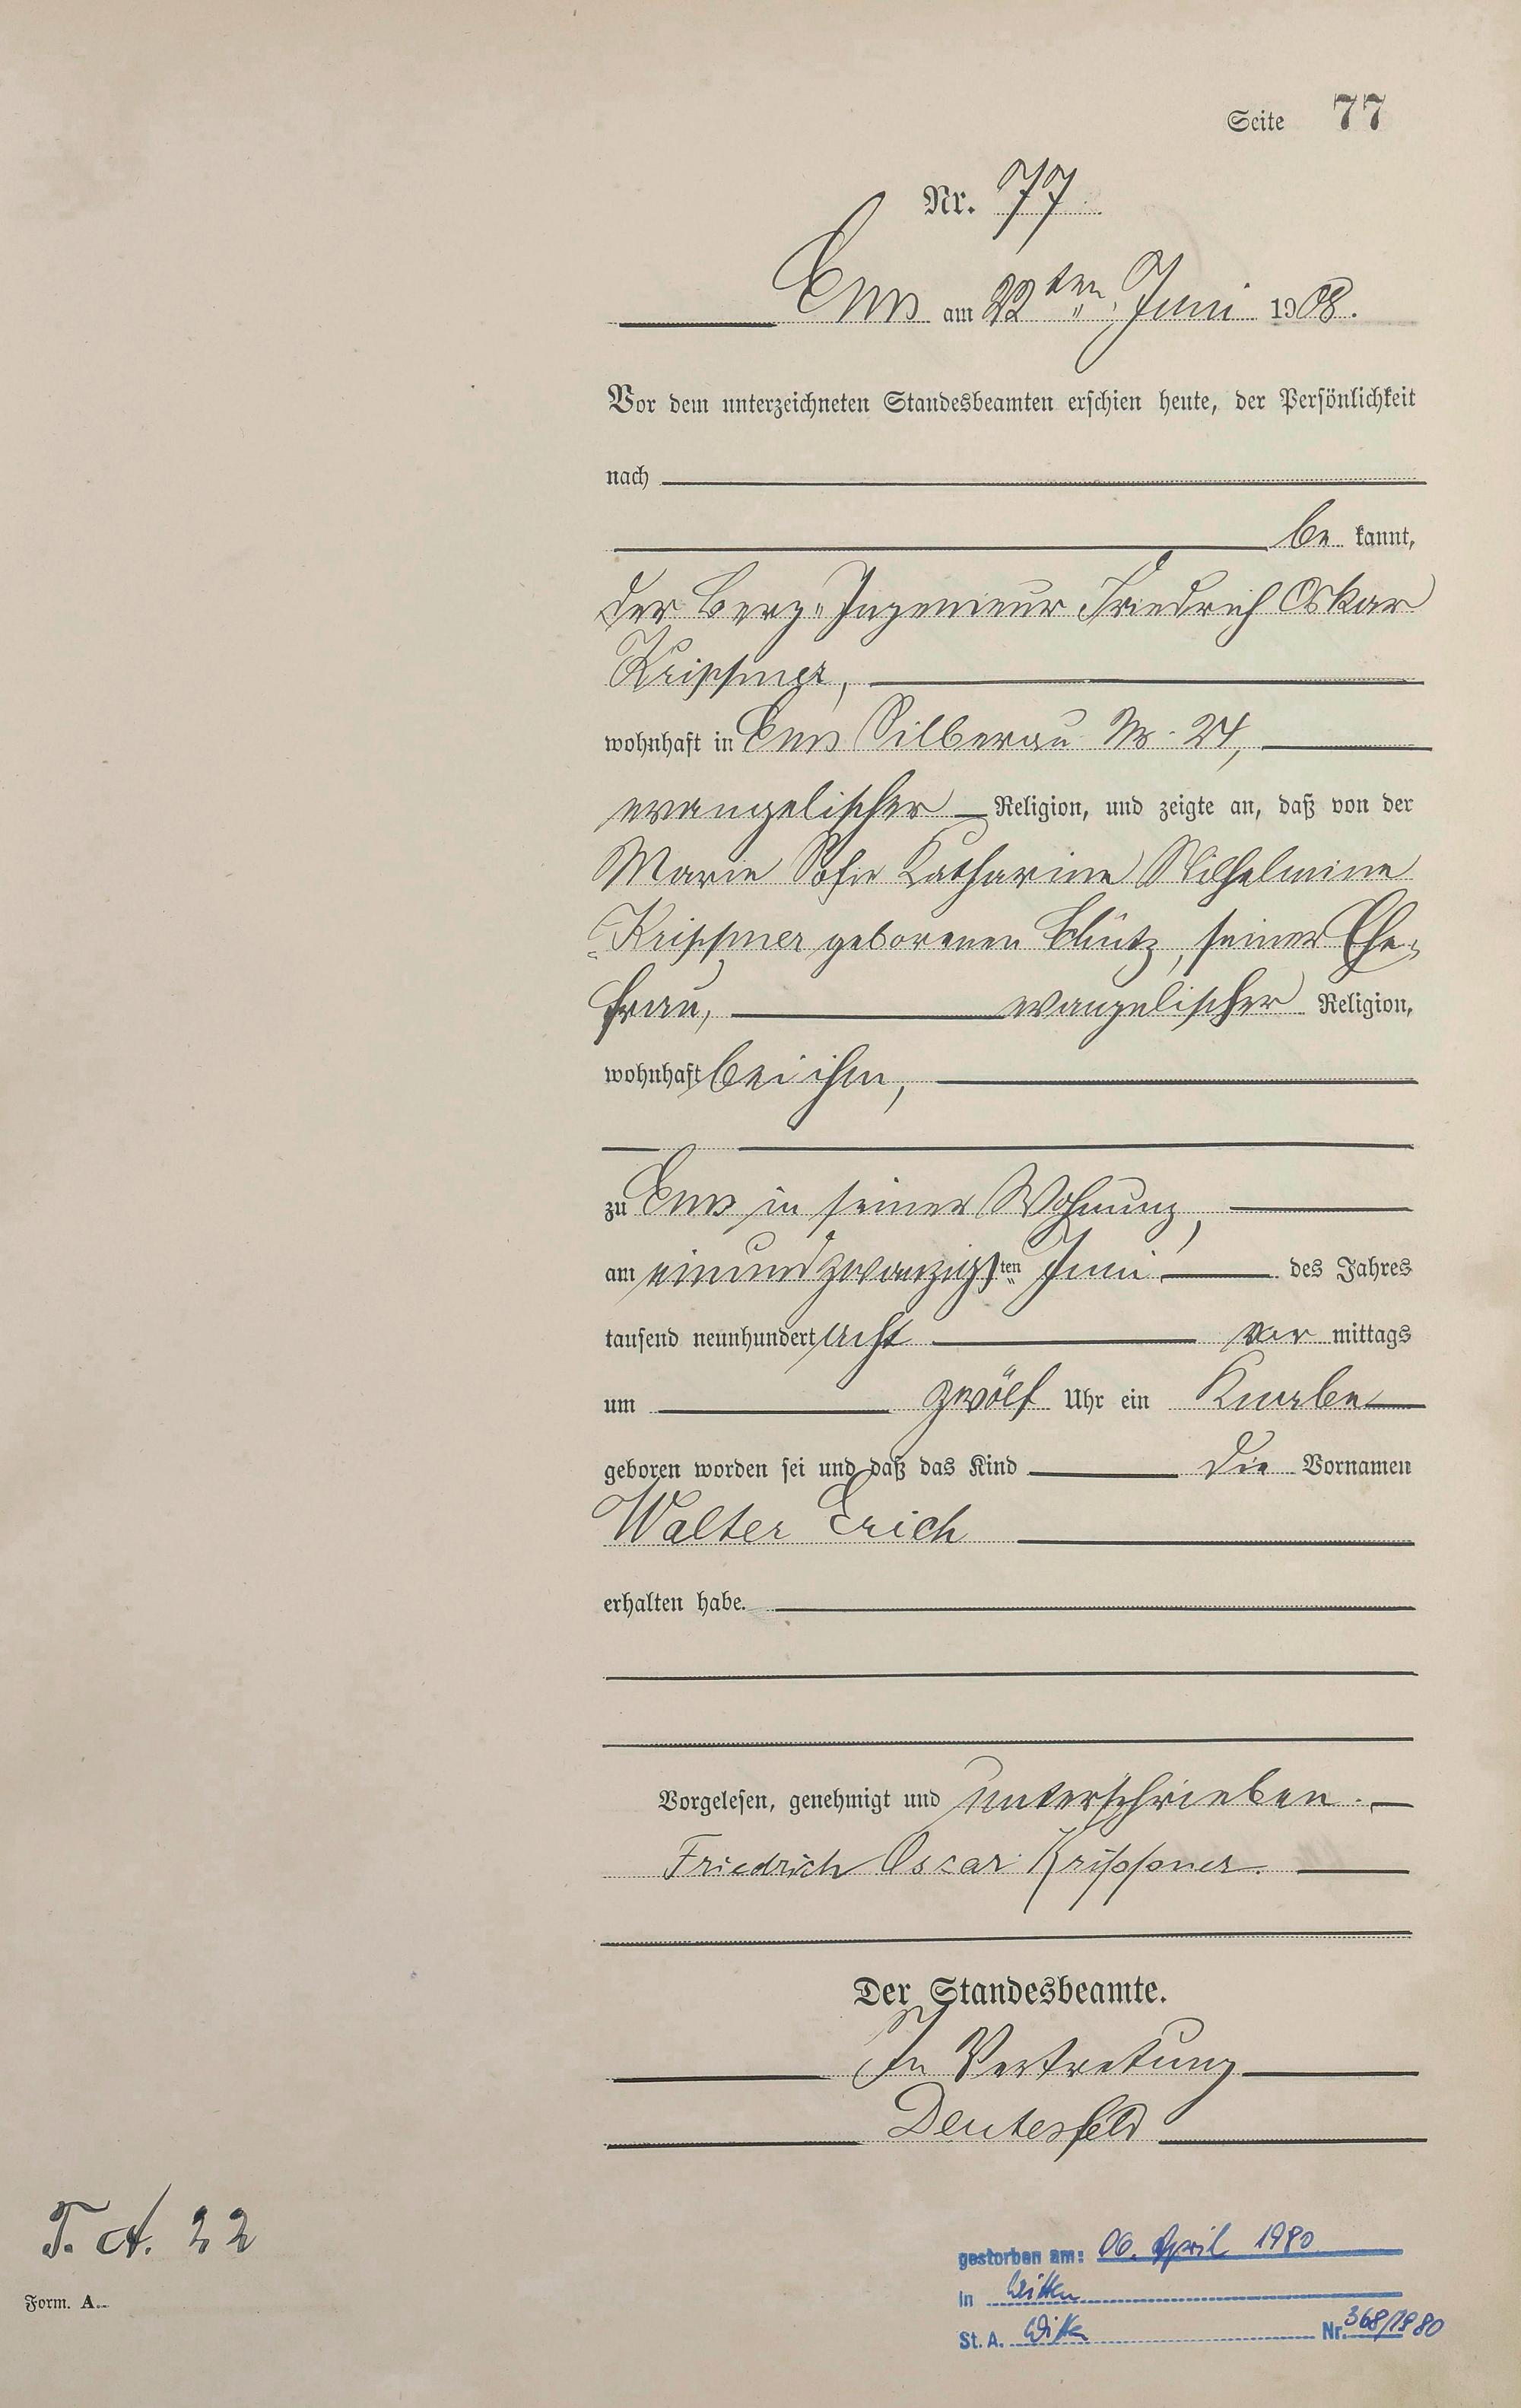 Seite 77
Nr. 77
Ems am 22ten Juni 1908.
Vor dem unterzeichneten Standesbeamten erschien heute, der Persönlichkeit
nach
be kannt,
der Berg-Ingenieur Friedrich Oskar
Krippner,
wohnhaft in Ems Silberau Nr. 24,
evangelischer Religion, und zeigte an, daß von der
Marie Sofie Katharine Wilhelmine
Krippner geborenen Schütz, seiner Ehe-
frau, evangelischer Religion,
wohnhaft bei ihm,
zu Ems in seiner Wohnung,
am einundzwanzigsten Juni des Jahres
tausend neunhundert acht vor mittags
um zwölf Uhr ein Knabe
geboren worden sei und daß das Kind die Vornamen
Walter Erich
erhalten habe.
Vorgelesen, genehmigt und unterschrieben.
Friedrich Oscar Krippner.
Der Standesbeamte.
In Vertretung
Deutesfeld
T. A. 22
gestorben am: 06. April 1980
in Witten
St. A. Witten Nr. 368/1980
Form. A.